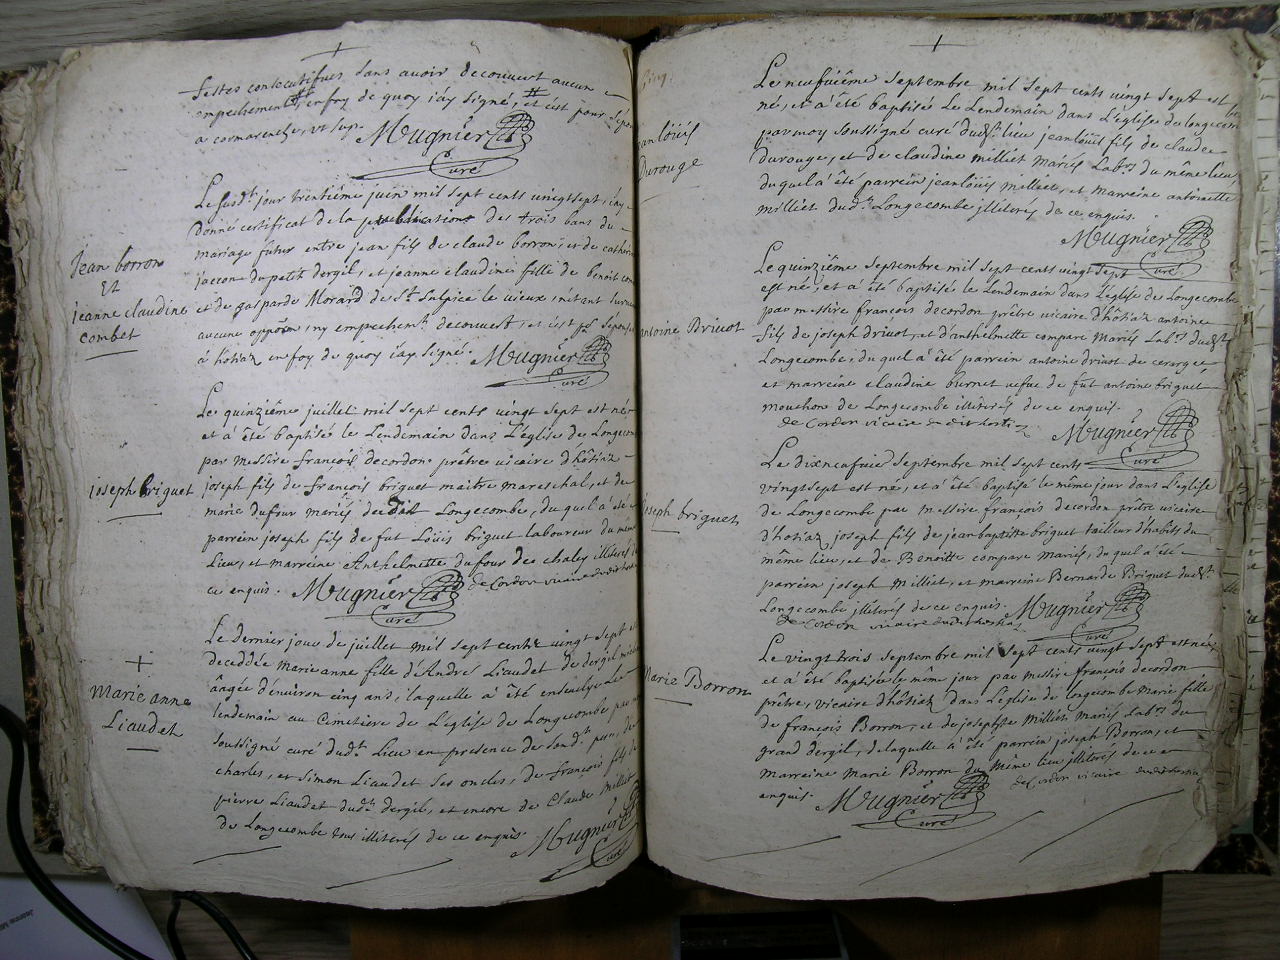 festes consecutifves sans avoir decouvert aucun
empechement, en foy de quoy i'ay signé, et est pour
a cormaranche, ut sup. Mugnier
Curé
Jean borron
Et
jeanne claudine
combet
Le susd.t jour trentiême juin mil sept cents vingt sept, i'ay
donné certificat de la publications des trois bans du
mariage futur entre jean fils de claude borron, et de
jaccon du petit dergil, et jeanne claudine fille de benoit
et de gasparde Morard de S.t Sulpice le vieux, n'étant
aucune ny empechem.t decouvert, et est
à hotiaz en foy de quoy i'ay signé. Mugnier
Curé
joseph briguet
Le quinziême juillet mil sept cents vingt sept est né
et à été baptisé le Lendemain dans L'église de
par messire françois decordon prêtre vicaire d'hôtiaz
joseph fils de françois briguet maitre mareschal, et de
marie dufour mariés dudit Longecombe, du quel à été
parrein joseph fils de fut Loüis briguet laboureur du
Lieu, et marreine Anthelmette dufour de chaley illiterés
ce enquis. Mugnier
Curé
de Cordon vicaire
Marie anne
Liaudet
Le dernier jour de juillet mil sept cents vingt sept
deceddée Marie anne fille d'André Liaudet de dergil
ângée d'environ cinq ans, laquelle à été ensevelye Le
lendemain au Cemetiére de L'église de Longecombe par
soussigné curé dud.t Lieu en presence de sond.t pere, de
charles, et Simon Liaudet ses oncles, de françois fils de
pierre Liaudet dud.t dergil, et encore de Claude Milliet
de Longecombe tous illiterés de ce enquis. Mugnier
Curé
jean loüis
Durouge
Le neufviéme septembre mil sept cents vingt sept est
né, et à été baptisé Le Lendemain dans L'église de
par moy soussigné curé dud.t lieu jean loüis fils de claude
durouge, et de claudine milliet Mariés Lab.rs du même lieu,
duquel à été parrein jean loüis milliet, et Marreine antoinette
milliet dud.t Longecombe illiterés de ce enquis.
Mugnier
Curé
antoine Drivot
Le quinziéme septembre mil sept cents vingt sept
est né, et à été baptisé Le Lendemain dans L'église de Longecombe
par messire françois decordon prêtre vicaire d'hôtiaz antoine
fils de joseph drivot, et d'anthelmette compare Mariés Lab.rs dud.t
Longecombe, du quel à été parrein antoine drivot de
et marreine claudine burnet vefve de fut antoine briguet
mouchon de Longecombe illiterés de ce enquis.
de Cordon vicaire
Mugnier
Curé
joseph briguet
Le dixneufvie septembre mil sept cents
vingt sept est né, et à été baptisé le même jour dans L'église
de Longecombe par messire françois decordon prêtre vicaire
d'hôtiaz joseph fils de jean baptiste briguet tailleur d'habits du
même lieu, et de Benoitte compare Mariés, du quel à été
parrein joseph Milliet, et marreine Bernarde Briguet dud.t
Longecombe illiterés de ce enquis. Mugnier
Curé
de Cordon vicaire
Marie Borron
Le vingt trois septembre mil sept cents vingt sept est née
et à été baptisée le même jour par messire françois decordon
prêtre, vicaire d'hôtiaz dans L'eglise de Longecombe Marie fille
de françois Borron, et de josephte Milliet Mariés Lab.rs du
grand dergil, de laquelle à été parrein joseph Borron, et
marreine Marie Borron du Même lieu illiterés de ce
enquis. Mugnier
Curé
de Cordon vicaire